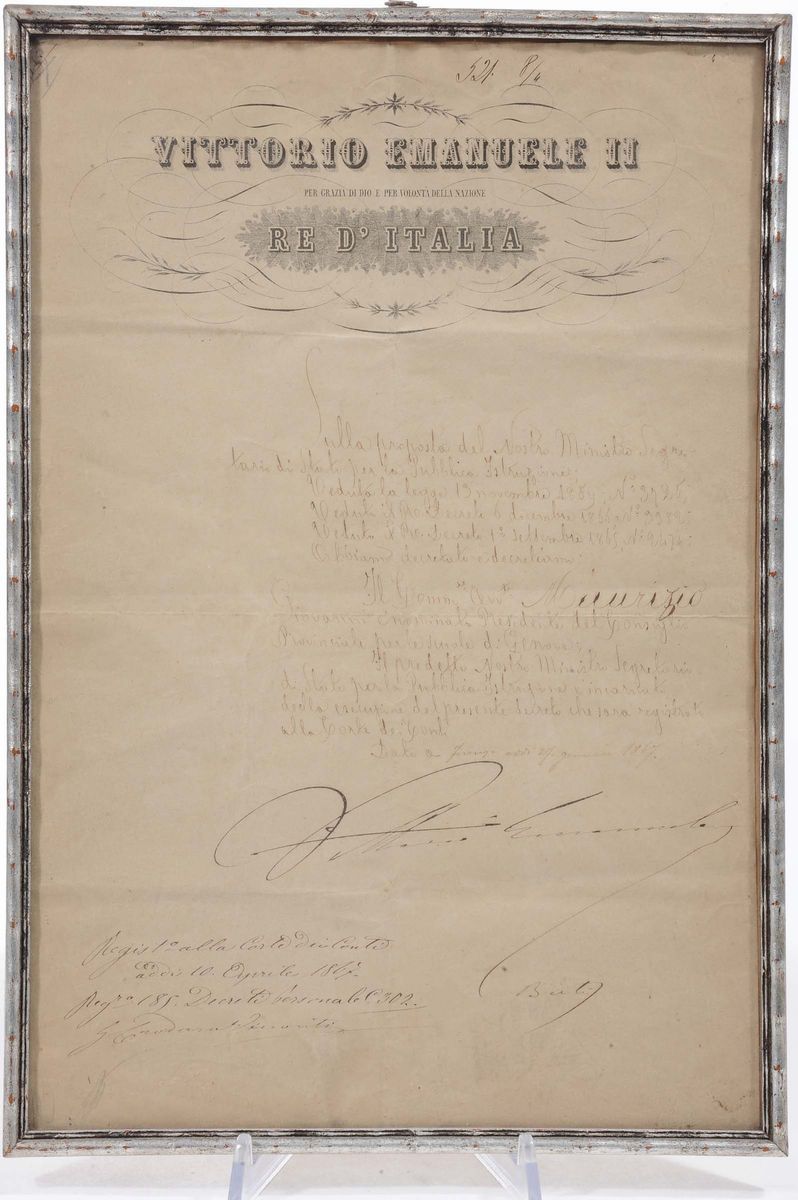 521. 8/4
VITTORIO EMANUELE II
PER GRAZIA DI DIO E PER VOLONTA DELLA NAZIONE
RE D'ITALIA
Sulla proposta del Nostro Ministro Segre-
tario di Stato per la Pubblica Istruzione;
Veduta la legge 13 novembre 1859, Nº 3725;
Veduto il Rº Decreto 6 dicembre 1866, Nº 3382;
Veduto il Rº Decreto 1º Settembre 1865, Nº
Abbiamo decretato e decretiamo:
Il Comm.re Avv.to Maurizio
Giovanni è nominato Presidente del Consiglio
Provinciale per le scuole di Genova;
Il predetto Nostro Ministro Segretario
di Stato per la Pubblica Istruzione è incaricato
della esecuzione del presente Decreto che sarà registrato
alla Corte dei Conti.
Dato a Firenze addì 27 gennaio 1867.
Vittorio Emanuele
Regist.to alla Corte dei Conti
addì 10. Aprile 1867.
Reg.ro 185. Decreti personali C. 302.
Berti